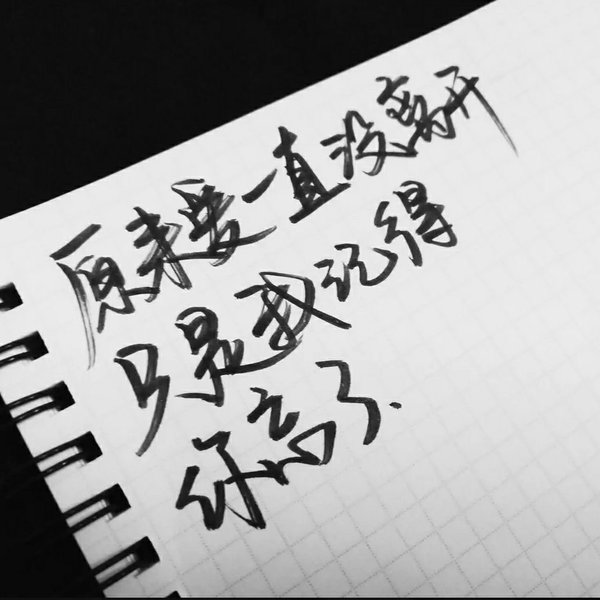 原来爱一直没离开
只是我记得
你忘了.